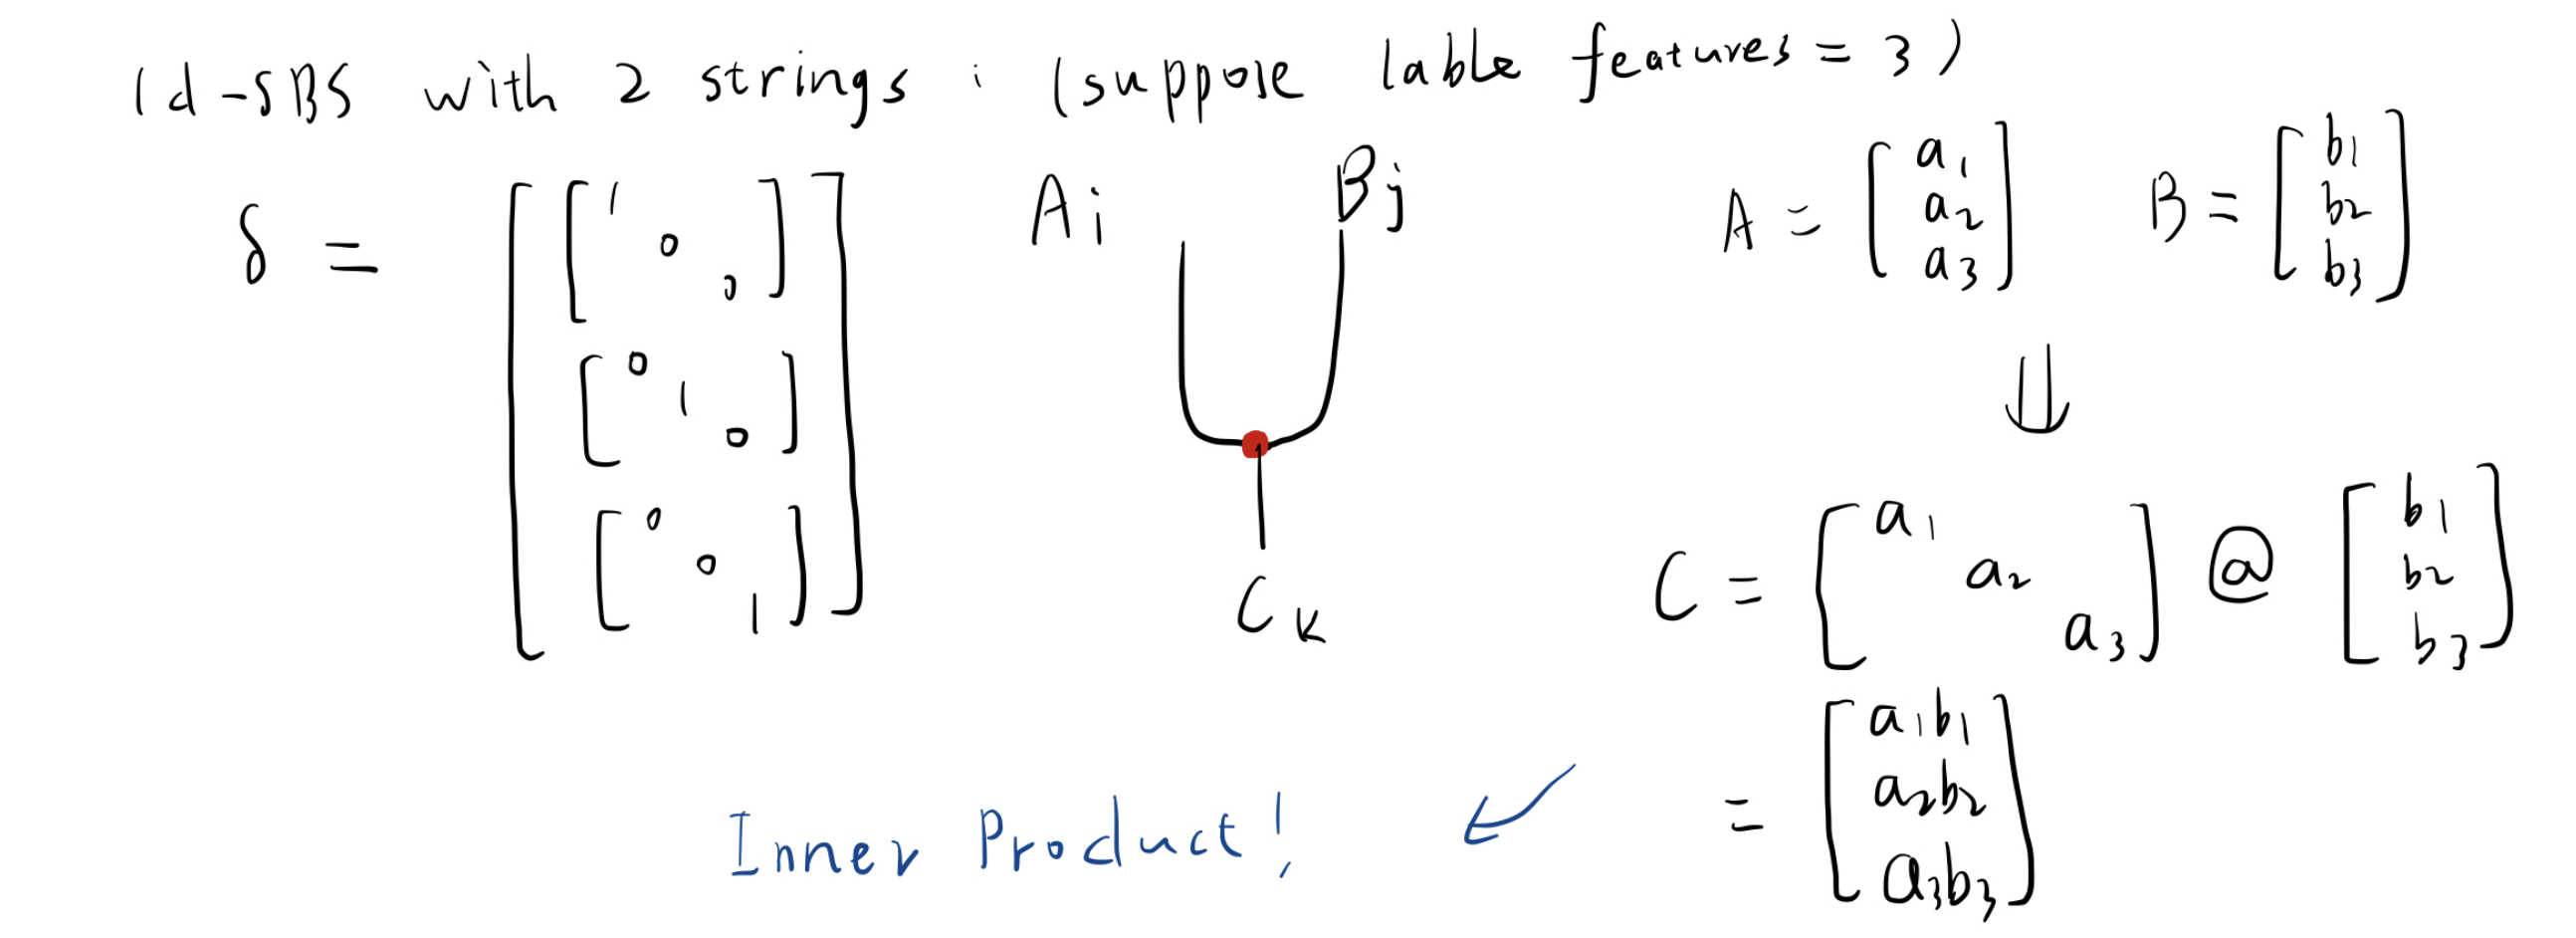 1d-SBS with 2 strings : (suppose lable features = 3)
δ = [ [ 1 0 0 ] [ 0 1 0 ] [ 0 0 1 ] ]
Ai Bj
Ck
A = [ a1 a2 a3 ] B = [ b1 b2 b3 ]
⇓
C = [ a1 a2 a3 ] @ [ b1 b2 b3 ]
= [ a1b1 a2b2 a3b3 ]
Inner Product!